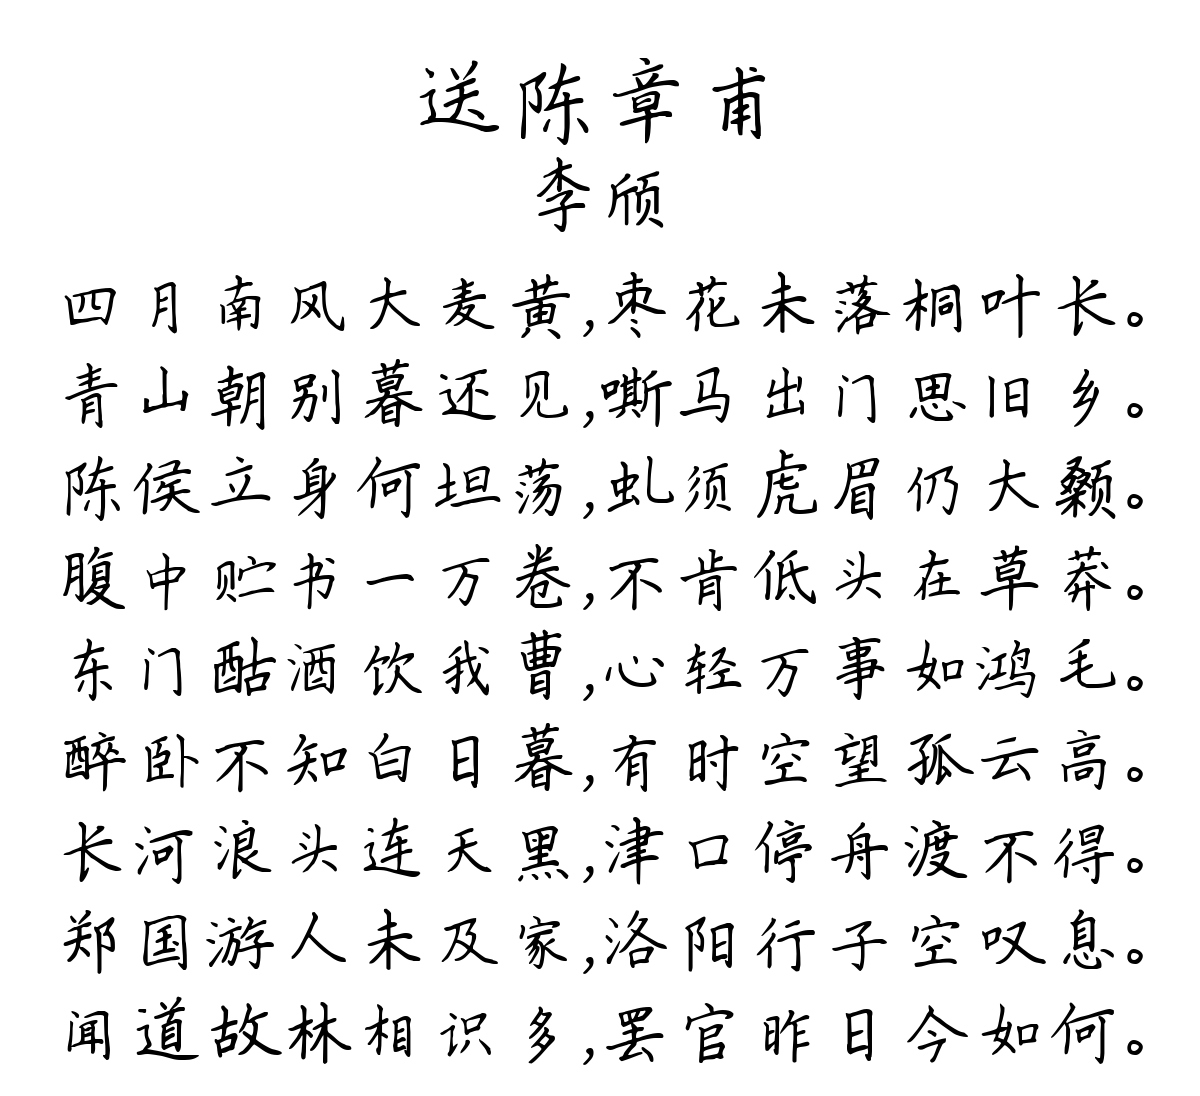 送陈章甫
李颀
四月南风大麦黄,枣花未落桐叶长。
青山朝别暮还见,嘶马出门思旧乡。
陈侯立身何坦荡,虬须虎眉仍大颡。
腹中贮书一万卷,不肯低头在草莽。
东门酤酒饮我曹,心轻万事如鸿毛。
醉卧不知白日暮,有时空望孤云高。
长河浪头连天黑,津口停舟渡不得。
郑国游人未及家,洛阳行子空叹息。
闻道故林相识多,罢官昨日今如何。